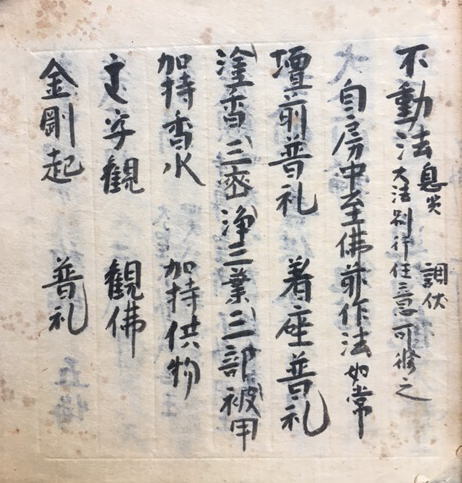 不動法 息災 調伏
大法別行任意可修之
自房中至佛前作法如常
壇前普礼 着座普礼
塗香 三密 浄三業 三部 被甲
加持香水 加持供物
字觀 觀佛
金剛起 普礼